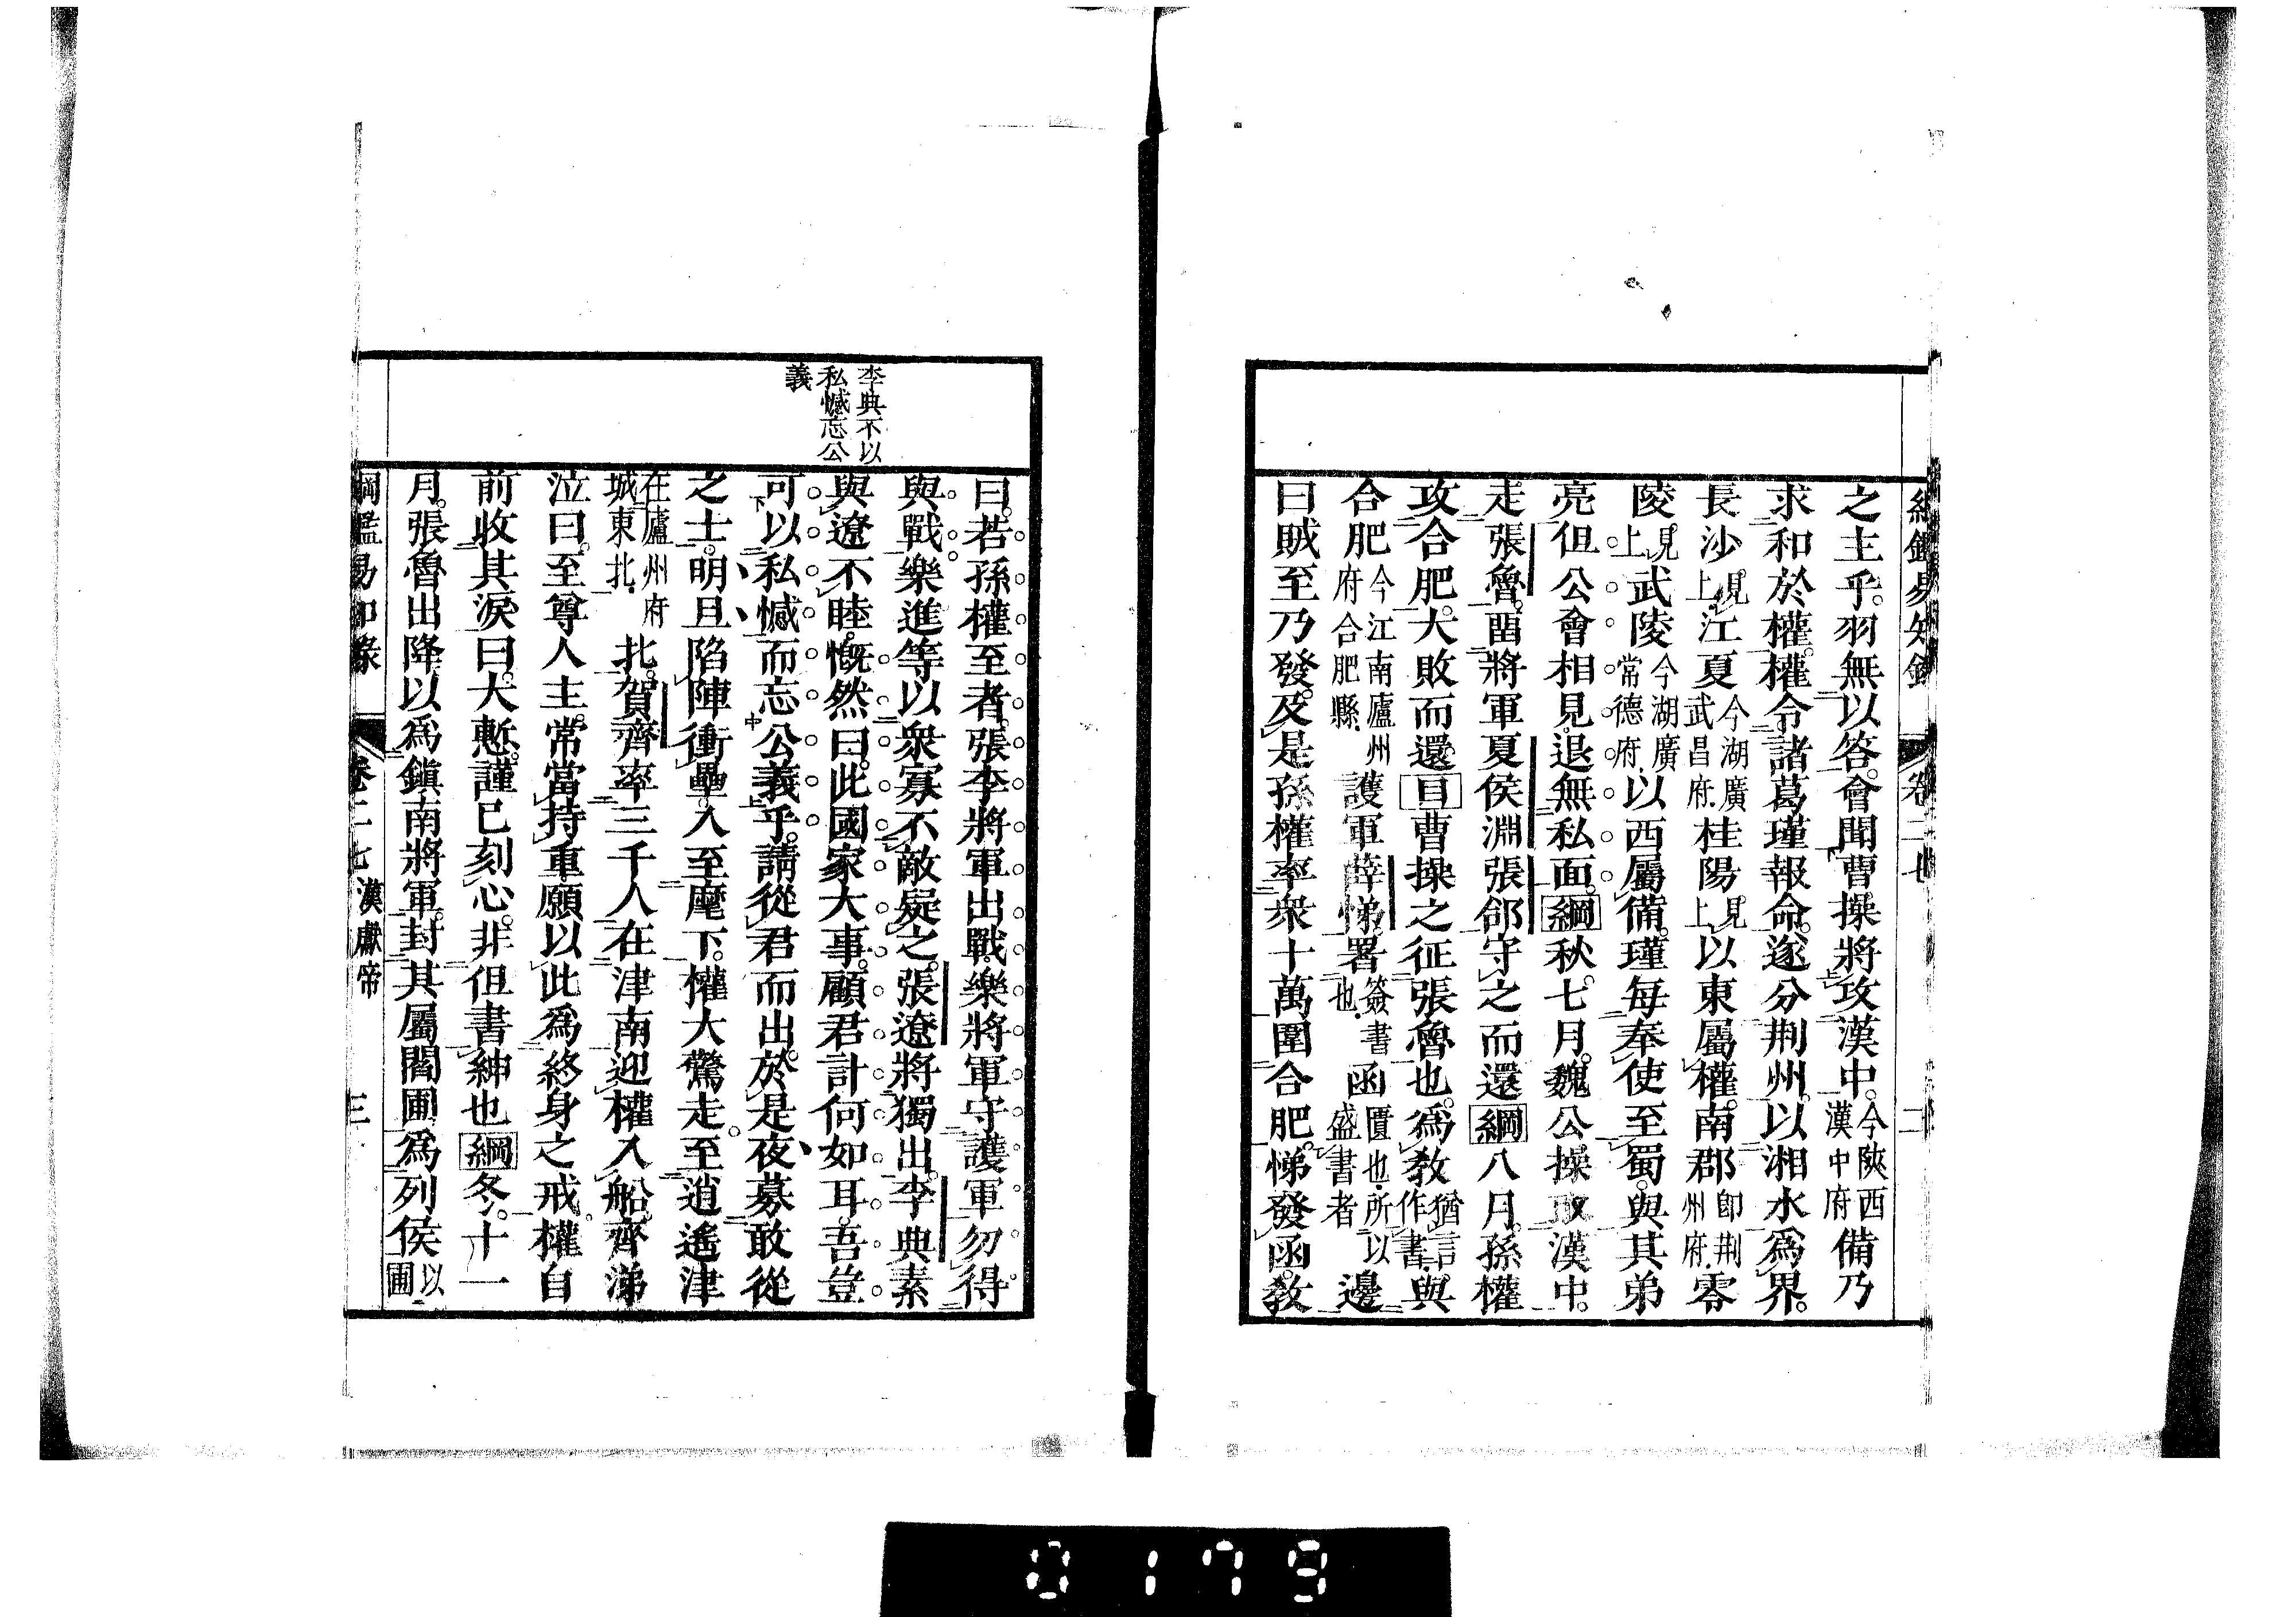 綱鑑易知錄 卷二七 二
之主乎。羽無以答。會聞曹操將攻漢中。今陝西漢中府備乃
求和於權。權令諸葛瑾報命。遂分荆州。以湘水爲界。
長沙。見上江夏今湖廣武昌府.桂陽。見上以東屬權。南郡卽荆州府.零
陵。見上武陵今湖廣常德府.以西屬備。瑾每奉使至蜀。與其弟
亮但公會相見。退無私面。綱秋。七月。魏公操取漢中。
走張魯。畱將軍夏侯淵張郃守之而還綱八月。孫權
攻合肥。大敗而還。目曹操之征張魯也。爲教猶言作書.與
合肥今江南廬州府合肥縣.護軍薛悌。署簽書也.函匱也.所以盛書者邊
曰賊至乃發。及是孫權率衆十萬圍合肥。悌發函。教
曰。若孫權至者。張李將軍出戰。樂將軍守護軍勿得
與戰。樂進等以衆寡不敵疑之。張遼將獨出。李典素
與遼不睦。慨然曰。此國家大事。顧君計何如耳。吾豈
可以私憾而忘公義乎。請從君而出。於是夜募敢從
之士。明旦陷陣衝壘。入至麾下。權大驚走。至逍遙津
在廬州府城東北.北。賀齊率三千人在津南迎權入船。齊涕
泣曰。至尊人主。常當持重。願以此爲終身之戒。權自
前收其淚曰。大慙。謹已刻心。非但書紳也綱冬。十一
月。張魯出降。以爲鎭南將軍。封其屬閻圃爲列侯以圃
李典不以
私憾忘公
義
綱鑑易知錄 卷二七 漢獻帝 三
0179